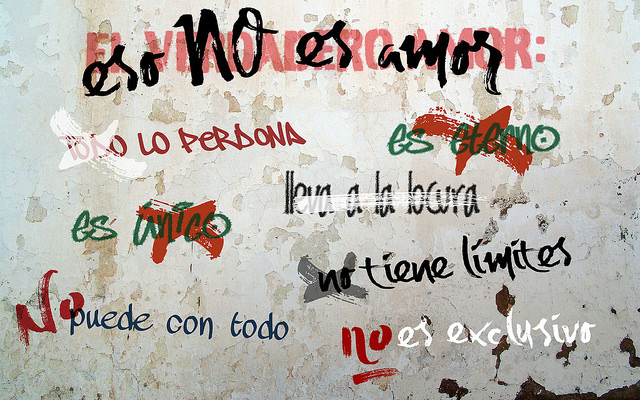 EL VERDADERO AMOR:
eso NO es amor
TODO LO PERDONA
es eterno
lleva a la locura
es único
no tiene límites
No puede con todo
no es exclusivo